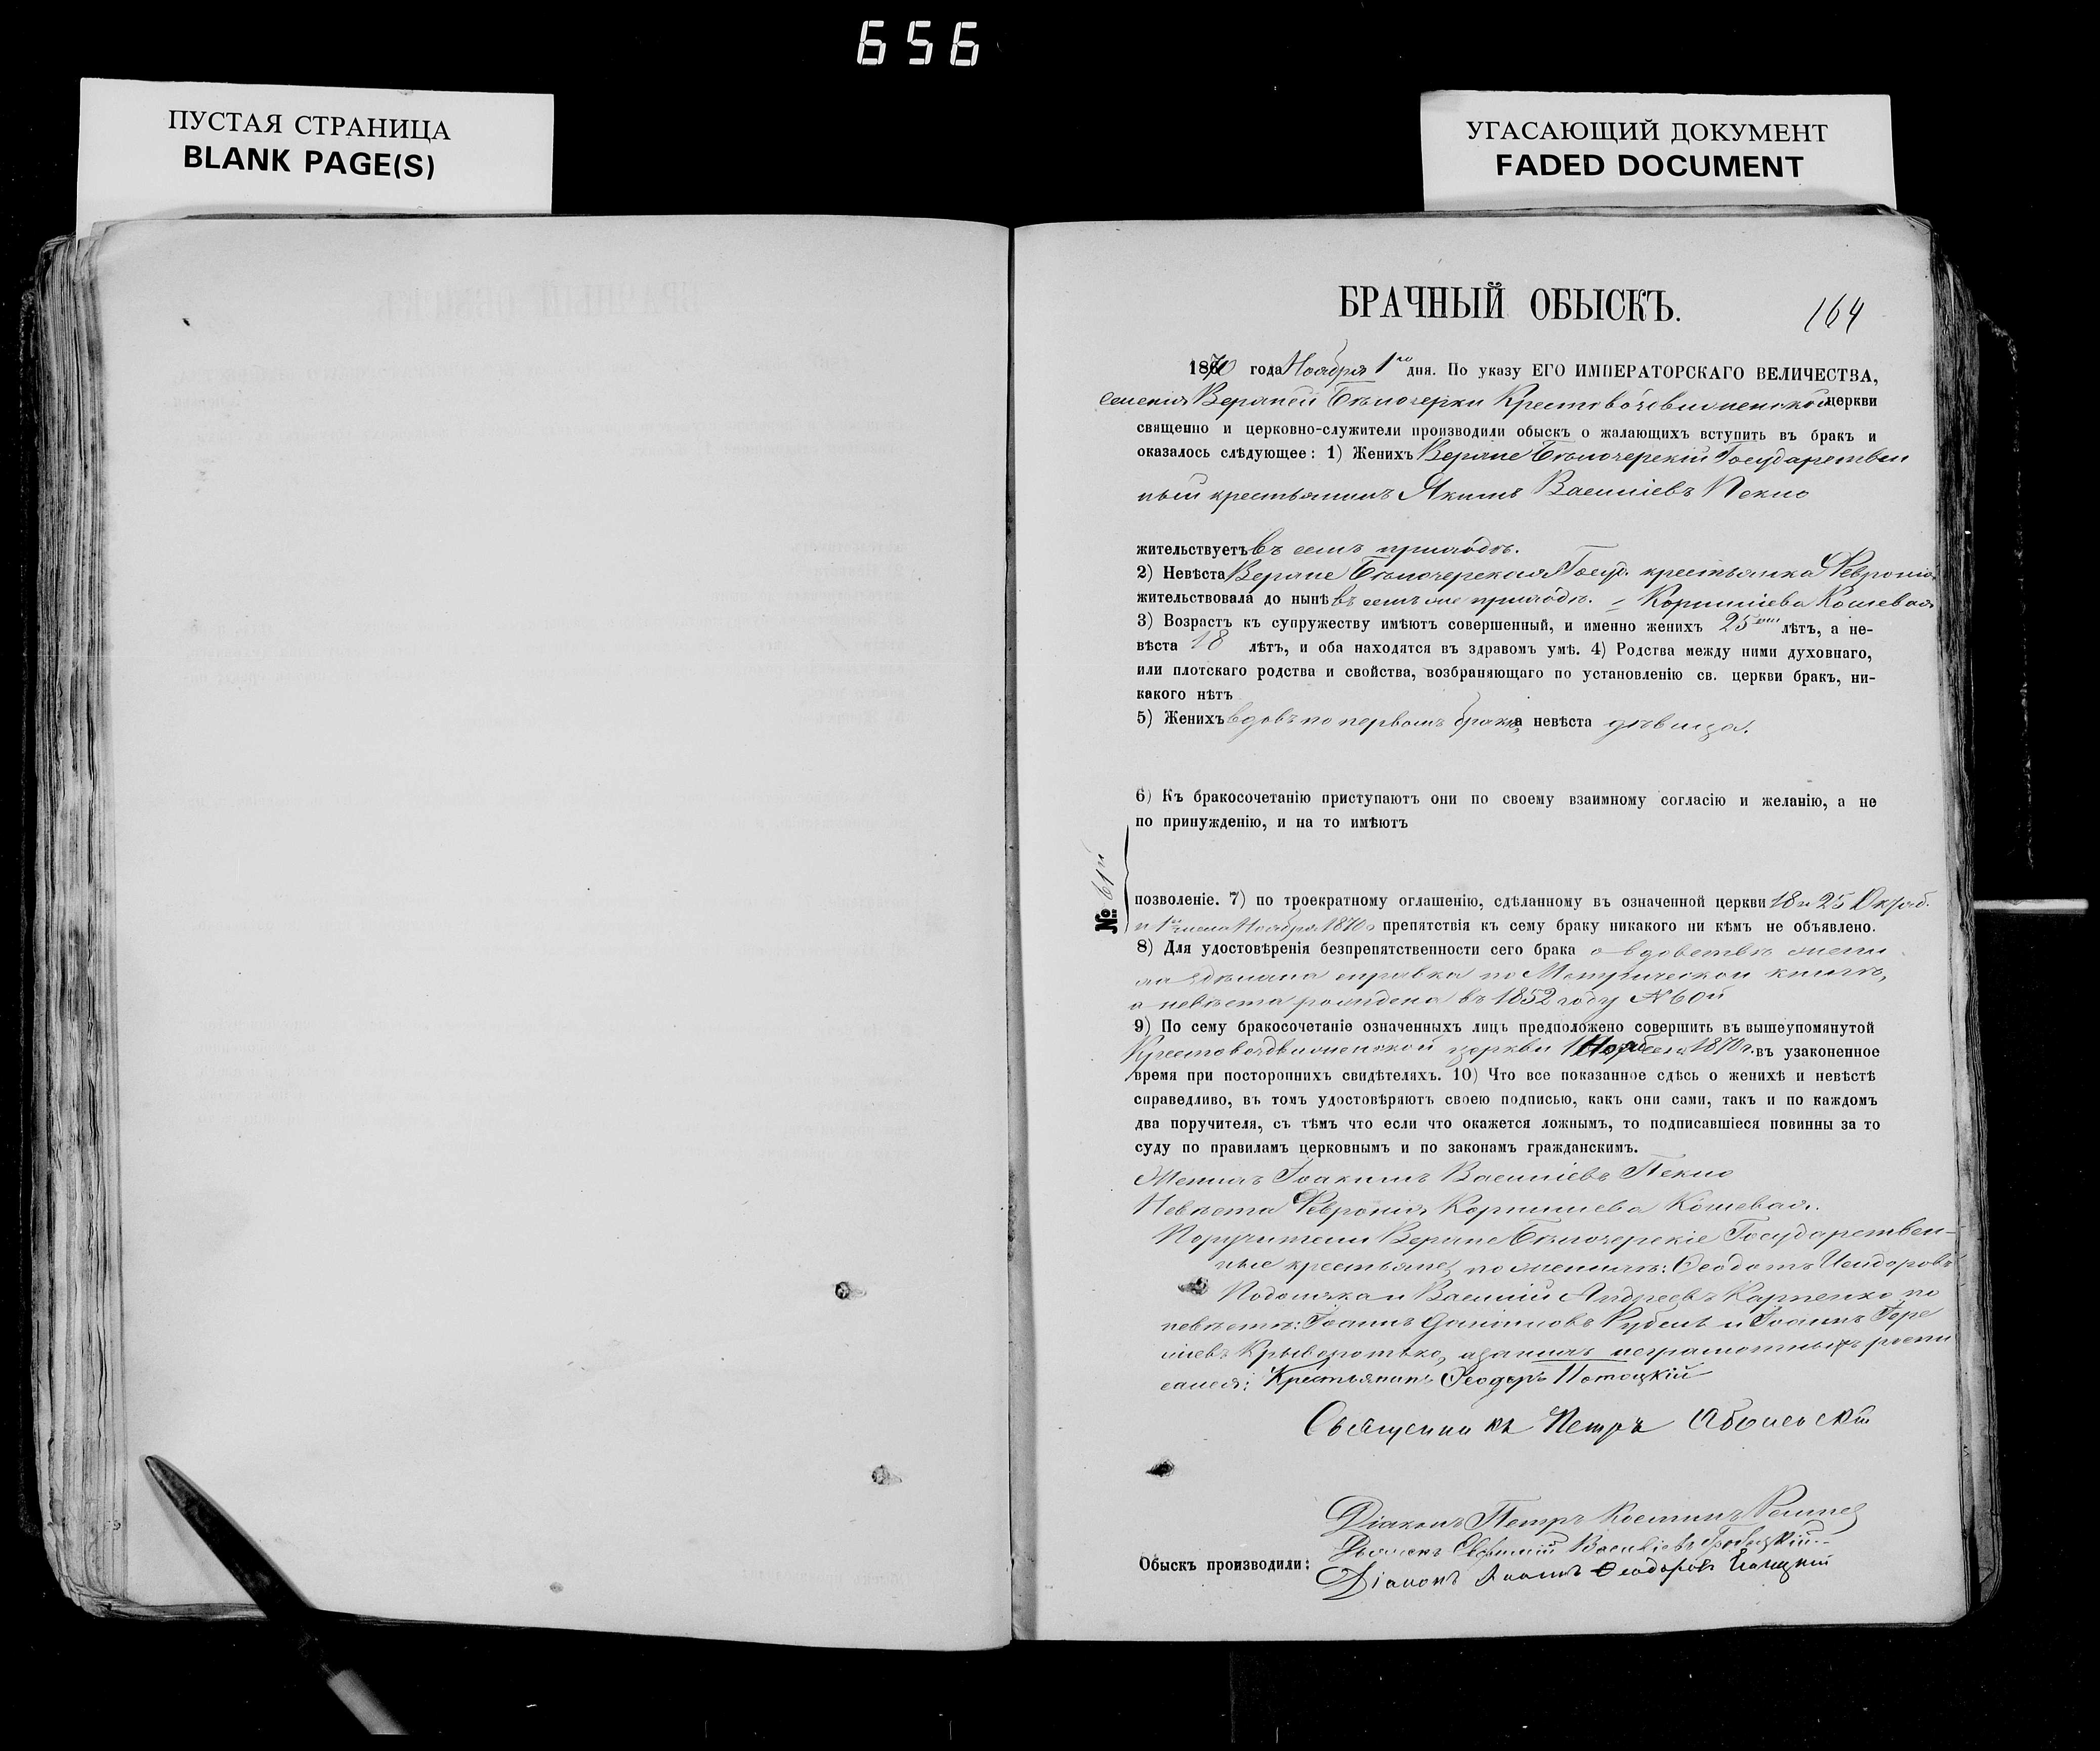 656
ПУСТАЯ СТРАНИЦА
BLANK PAGE(S)
УГАСАЮЩИЙ ДОКУМЕНТ
FADED DOCUMENT
БРАЧНЫЙ ОБЫСКЪ.
164
1870 года Ноября 1го дня. По указу ЕГО ИМПЕРАТОРСКАГО ВЕЛИЧЕСТВА,
селенія Верхней Бѣлозерки Крестовоздвиженской церкви
священно и церковно-служители производили обыскъ о жалающихъ вступить въ бракъ и
оказалось слѣдующее: 1) Женихъ Верхне Бѣлозерскій Государствен
ный крестьянинъ Якимъ Василіевъ Пекло
жительствуетъ въ семъ приходѣ.
2) Невѣста Верхне Бѣлозерская Госуд. крестьянка Феөронія
жительствовала до нынѣ въ семъ же приходѣ. Корниліева Кошевая
3) Возрастъ къ супружеству имѣютъ совершенный, и именно женихъ 25 лѣтъ, а не-
вѣста 18 лѣтъ, и оба находятся въ здравомъ умѣ. 4) Родства между ними духовнаго,
или плотскаго родства и свойства, возбраняющаго по установленію св. церкви бракъ, ни-
какого нѣтъ
5) Женихъ вдовъ по первомъ бракѣ, а невѣста дѣвица.
6) Къ бракосочетанію приступаютъ они по своему взаимному согласію и желанію, а не
по принужденію, и на то имѣютъ
№ 61й
позволеніе. 7) по троекратному оглашенію, сдѣланному въ означенной церкви 18 и 25 Октяб.
и 1го числа Ноября 1870 препятствія къ сему браку никакого ни кѣмъ не объявлено.
8) Для удостовѣренія безпрепятственности сего брака о вдовствѣ жени
ха сдѣлана справка по Метрической книгѣ,
а невѣста рождена въ 1852 году № 60й
9) По сему бракосочетаніе означенныхъ лицъ предположено совершить въ вышеупомянутой
Крестовоздвиженской церкви 1 Ноября 1870 г. въ узаконенное
время при постороннихъ свидѣтеляхъ. 10) Что все показанное сдѣсь о женихѣ и невѣстѣ
справедливо, въ томъ удостовѣряютъ своею подписью, какъ они сами, такъ и по каждомъ
два поручителя, съ тѣмъ что если что окажется ложнымъ, то подписавшіеся повинны за то
суду по правиламъ церковнымъ и по законамъ гражданскимъ.
Женихъ Іоакимъ Василіевъ Пекло
Невѣста Февронія Корниліева Кошевая.
Поручители Верхне Бѣлозерскіе Государствен-
ные крестьяне, по женихѣ: Ѳеодотъ Исидоровъ
Подоляка и Василій Андреевъ Карпенко по
невѣстѣ: Іоаннъ Даніиловъ Рубель и Іоаннъ
Крыворотько, а за нихъ неграмотныхъ роспи
сался: Крестьянинъ Ѳеодоръ Потоцкій
Священникъ Петръ
Діаконъ Петръ
Евфимій Василіевъ
Обыскъ производили:
Діаконъ Іоаннъ Ѳеодоровъ